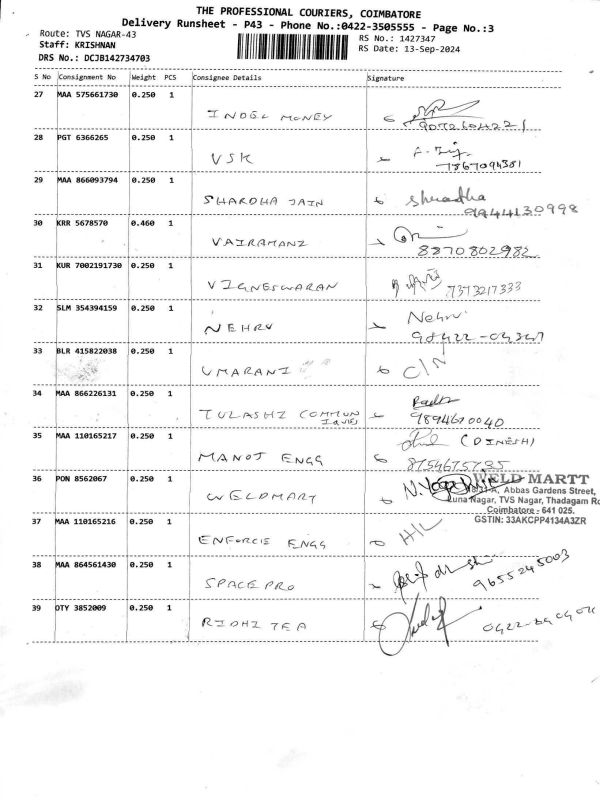 THE PROFESSIONAL COURIERS, COIMBATORE
Delivery Runsheet - P43 - Phone No.:0422-3505555 - Page No.:3
Route: TVS NAGAR-43
RS No.: 1427347
Staff: KRISHNAN
RS Date: 13-Sep-2024
DRS No.: DCJB142734703
S No Consignment No Weight PCS Consignee Details Signature
27 MAA 575661730 0.250 1
INDEL MONEY
28 PGT 6366265 0.250 1
VSK
7867094381
29 MAA 866093794 0.250 1
SHARDHA JAIN Shraddha
9944130998
30 KRR 5678570 0.460 1
VAIRAMANI
8870802982
31 KUR 7002191730 0.250 1
VIGNESWARAN 7373217333
32 SLM 354394159 0.250 1
NEHRU Nehru
33 BLR 415822038 0.250 1
UMARANI C/N
34 MAA 866226131 0.250 1
TULASHI COMMUN
9894670040
35 MAA 110165217 0.250 1
(DINESH)
MANOT ENGG 8754675735
36 PON 8562067 0.250 1
WELD MARTT
WELDMARY
Abbas Gardens Street,
Luna Nagar, TVS Nagar, Thadagam Ro
Coimbatore - 641 025.
GSTIN: 33AKCPP4134A3ZR
37 MAA 110165216 0.250 1
ENFORCIS ENGG
38 MAA 864561430 0.250 1
SPACE PRO 9655245003
39 OTY 3852009 0.250 1
RIDHI TEA